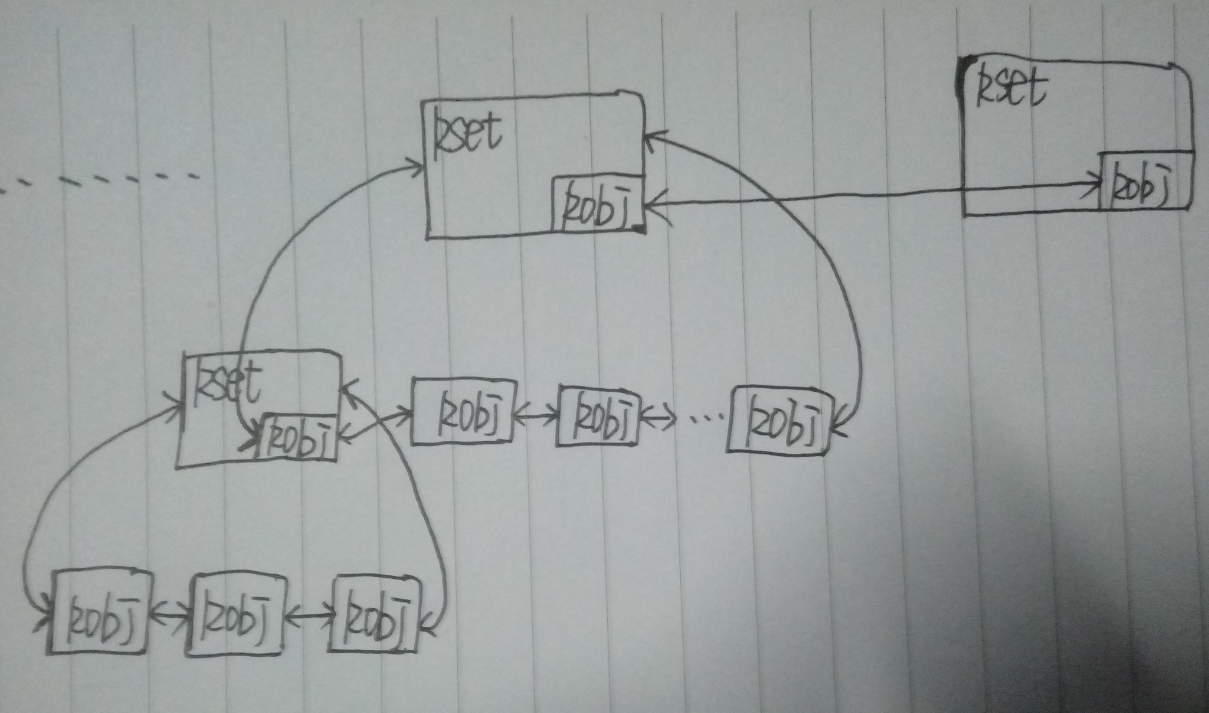 kset
kset
kobj
kobj
kset
kobj
kobj
kobj
...
kobj
kobj
kobj
kobj